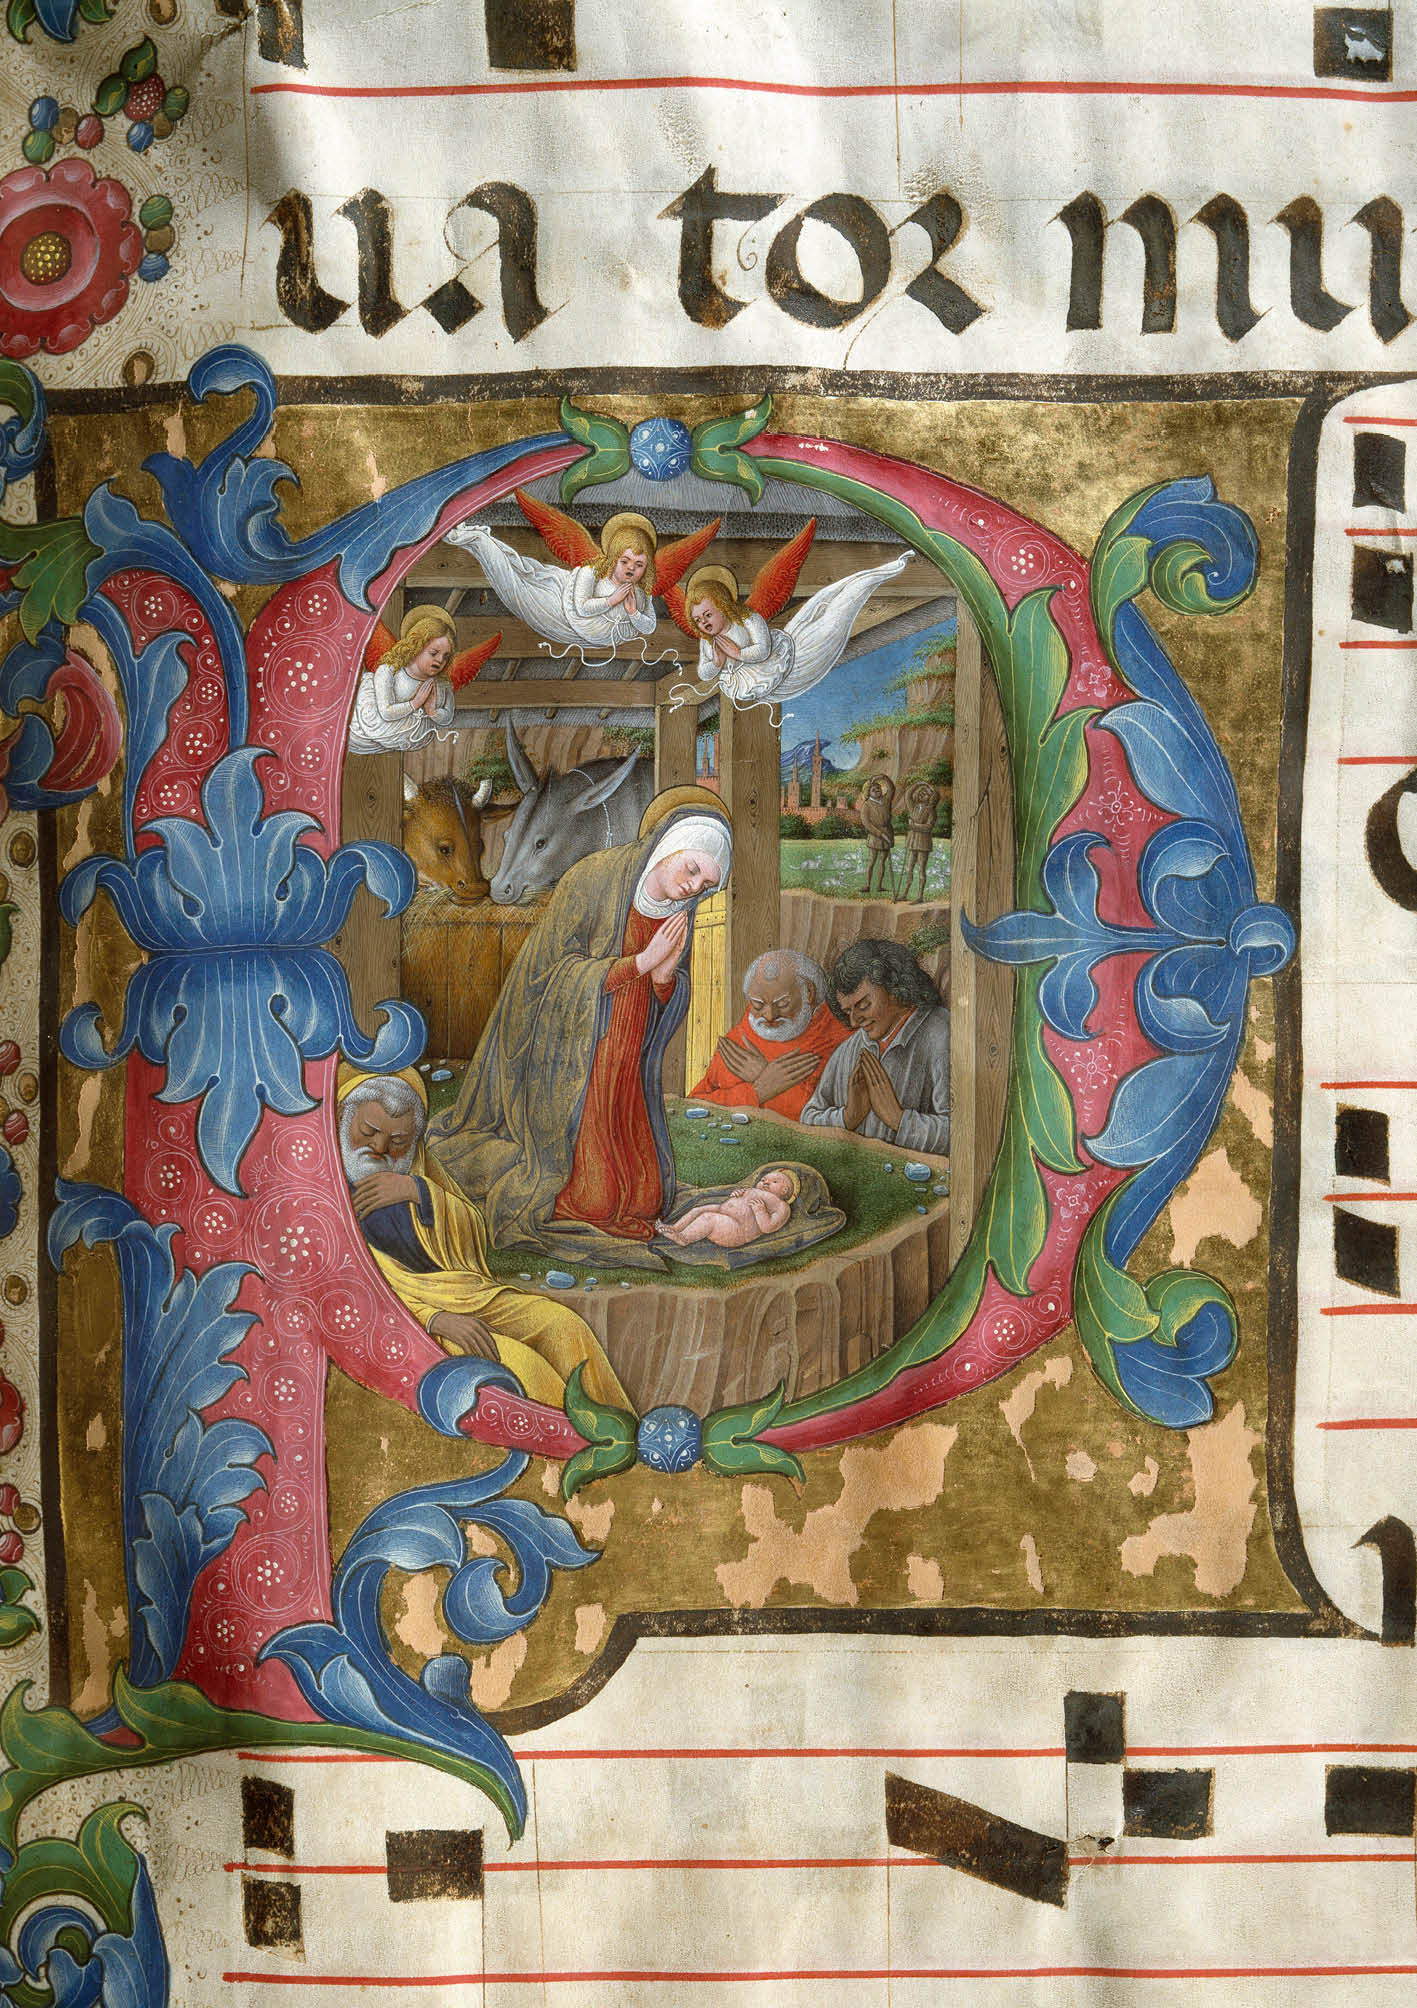 ua tor mu
P